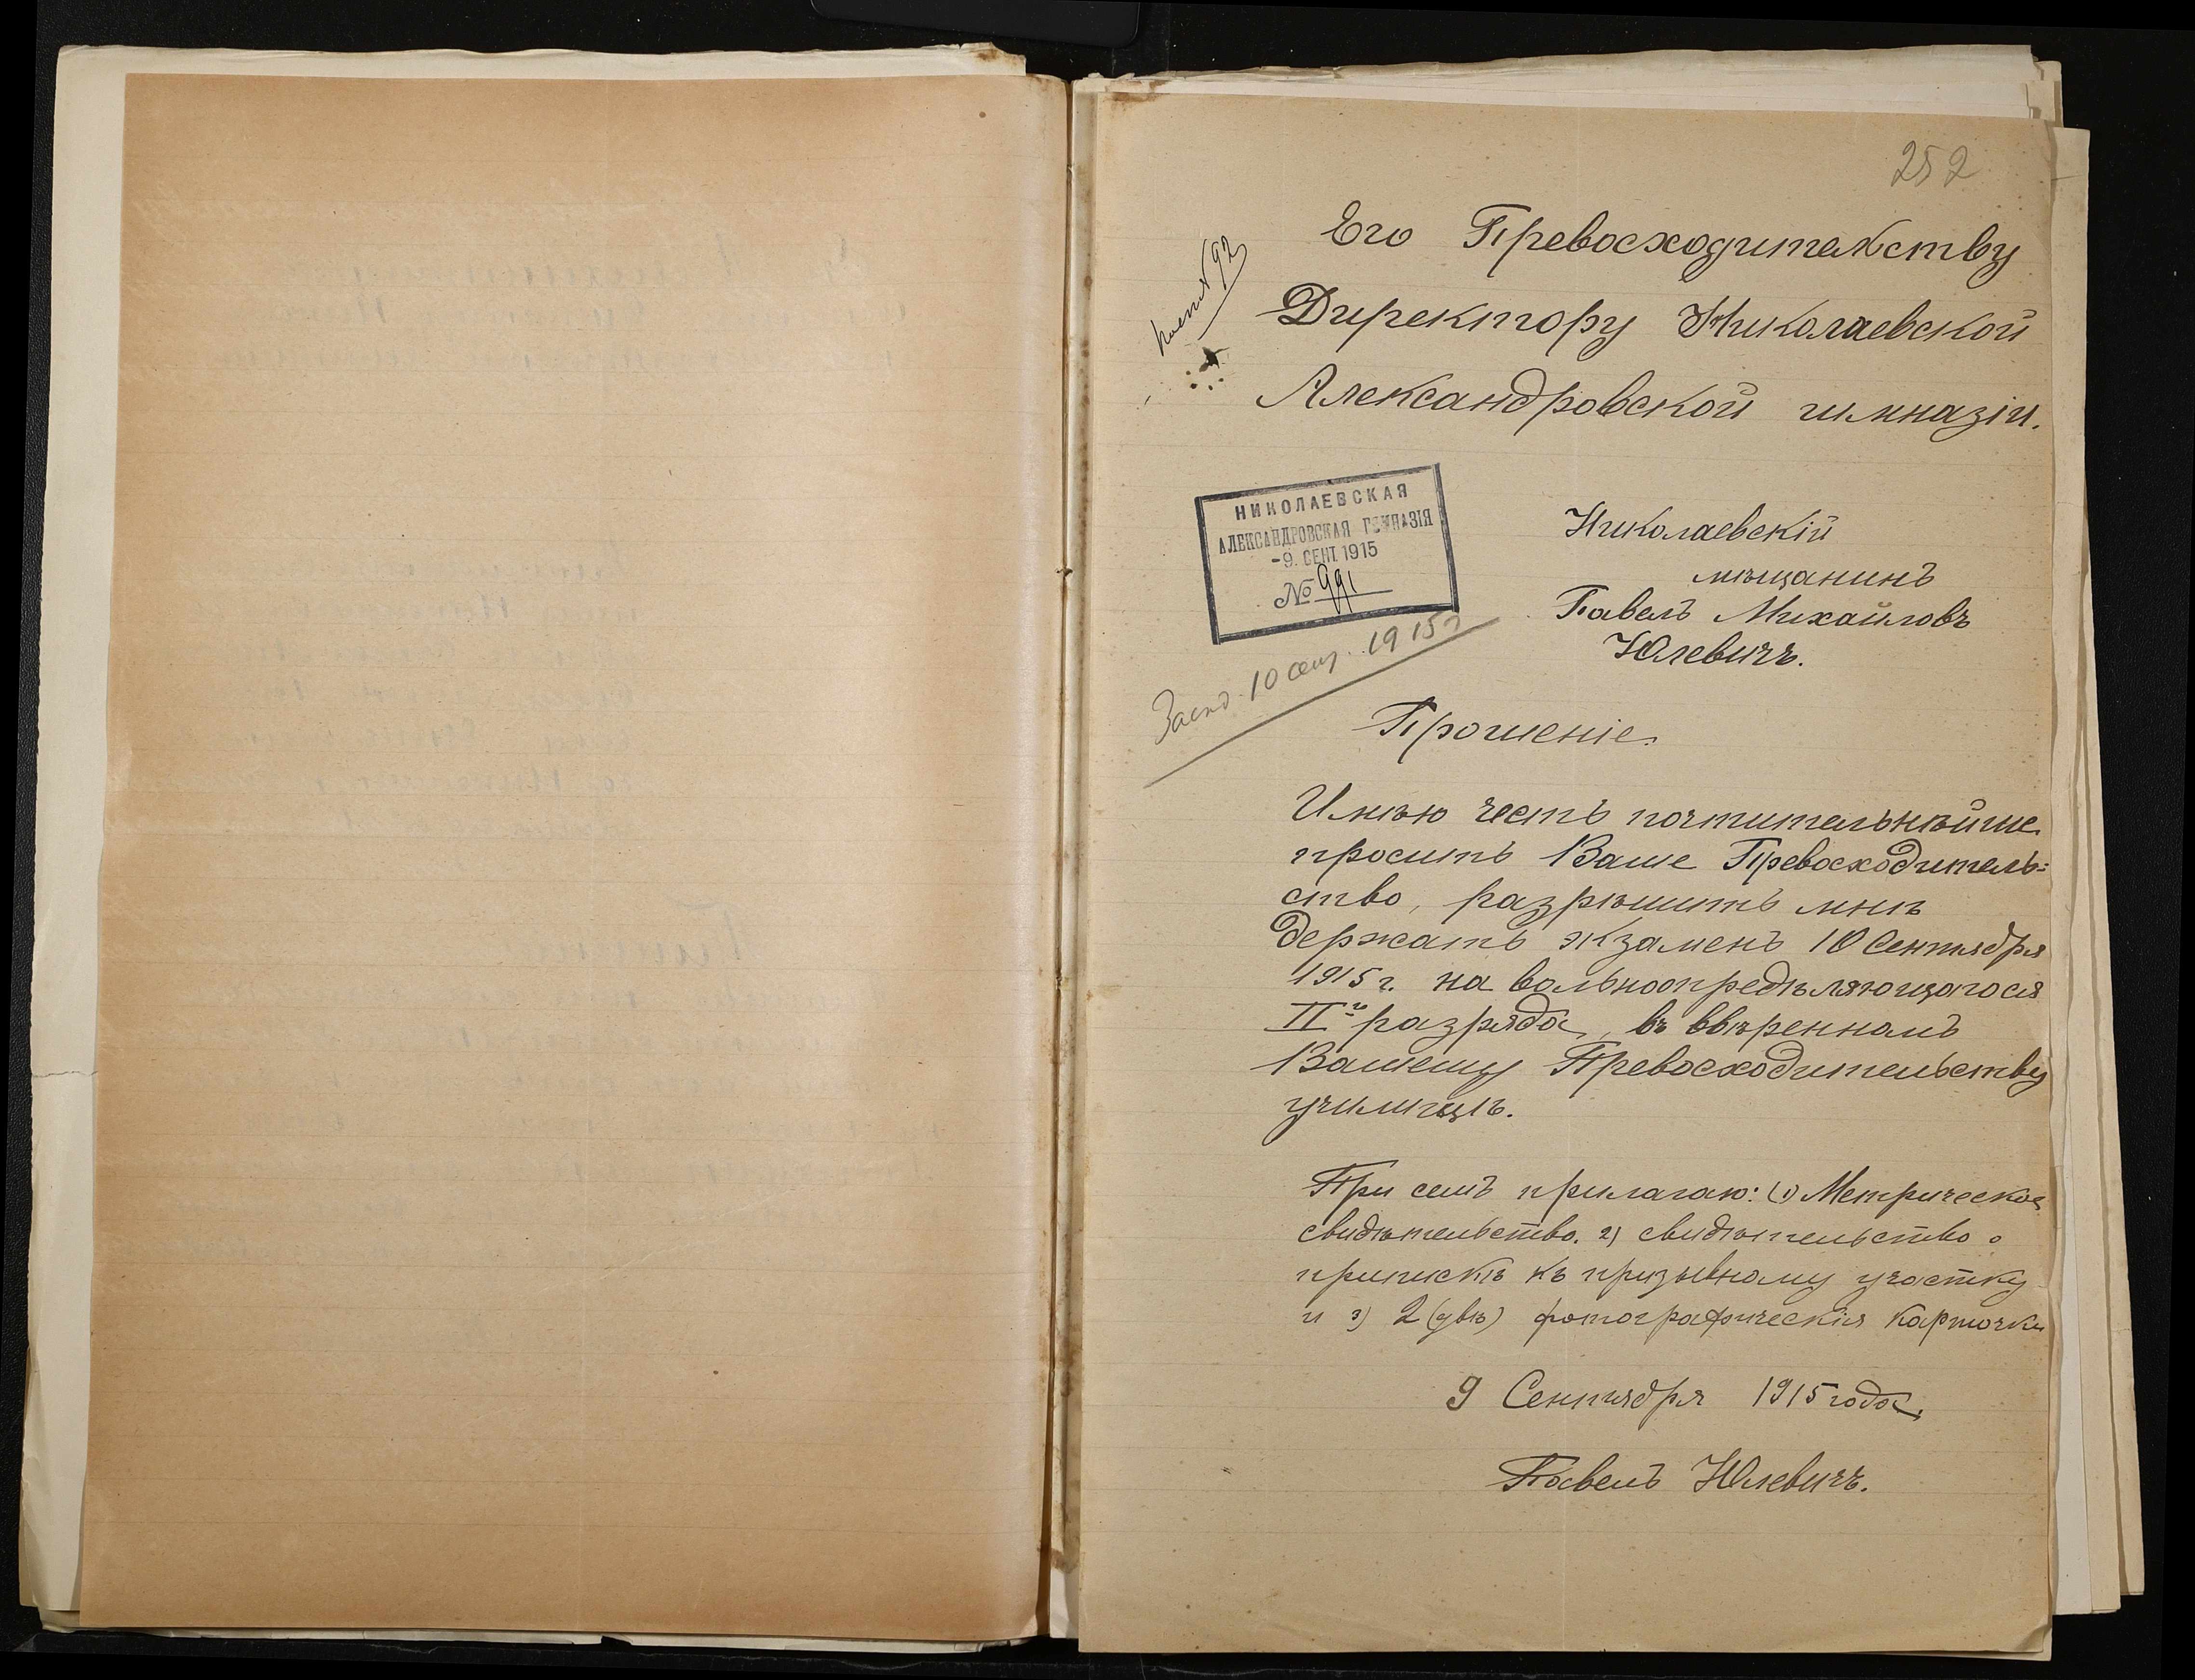 252
Его Превосходительству
Директору Николаевской
Александровской гимназіи.
№ 92
НИКОЛАЕВСКАЯ
АЛЕКСАНДРОВСКАЯ ГИМНАЗІЯ
-9. СЕНТ. 1915
№ 991
Николаевскій
мѣщанинъ
Павелъ Михайловъ
Юлевичъ.
10 сент. 1915 г
Прошеніе.
Имѣю честь почтительнѣйше
просить Ваше Превосходитель=
ство, разрѣшить мнѣ
держать экзаменъ 10 Сентября
1915 г. на вольноопредѣляющагося
IIго разряда, въ ввѣренномъ
Вашему Превосходительству
училищѣ.
При семъ прилагаю: 1) Метрическое
свидѣтельство. 2) свидѣтельство о
припискѣ къ призывному участку
и 3) 2 (двѣ) фотографическія карточки
9 Сентября 1915 года.
Павелъ Юлевичъ.